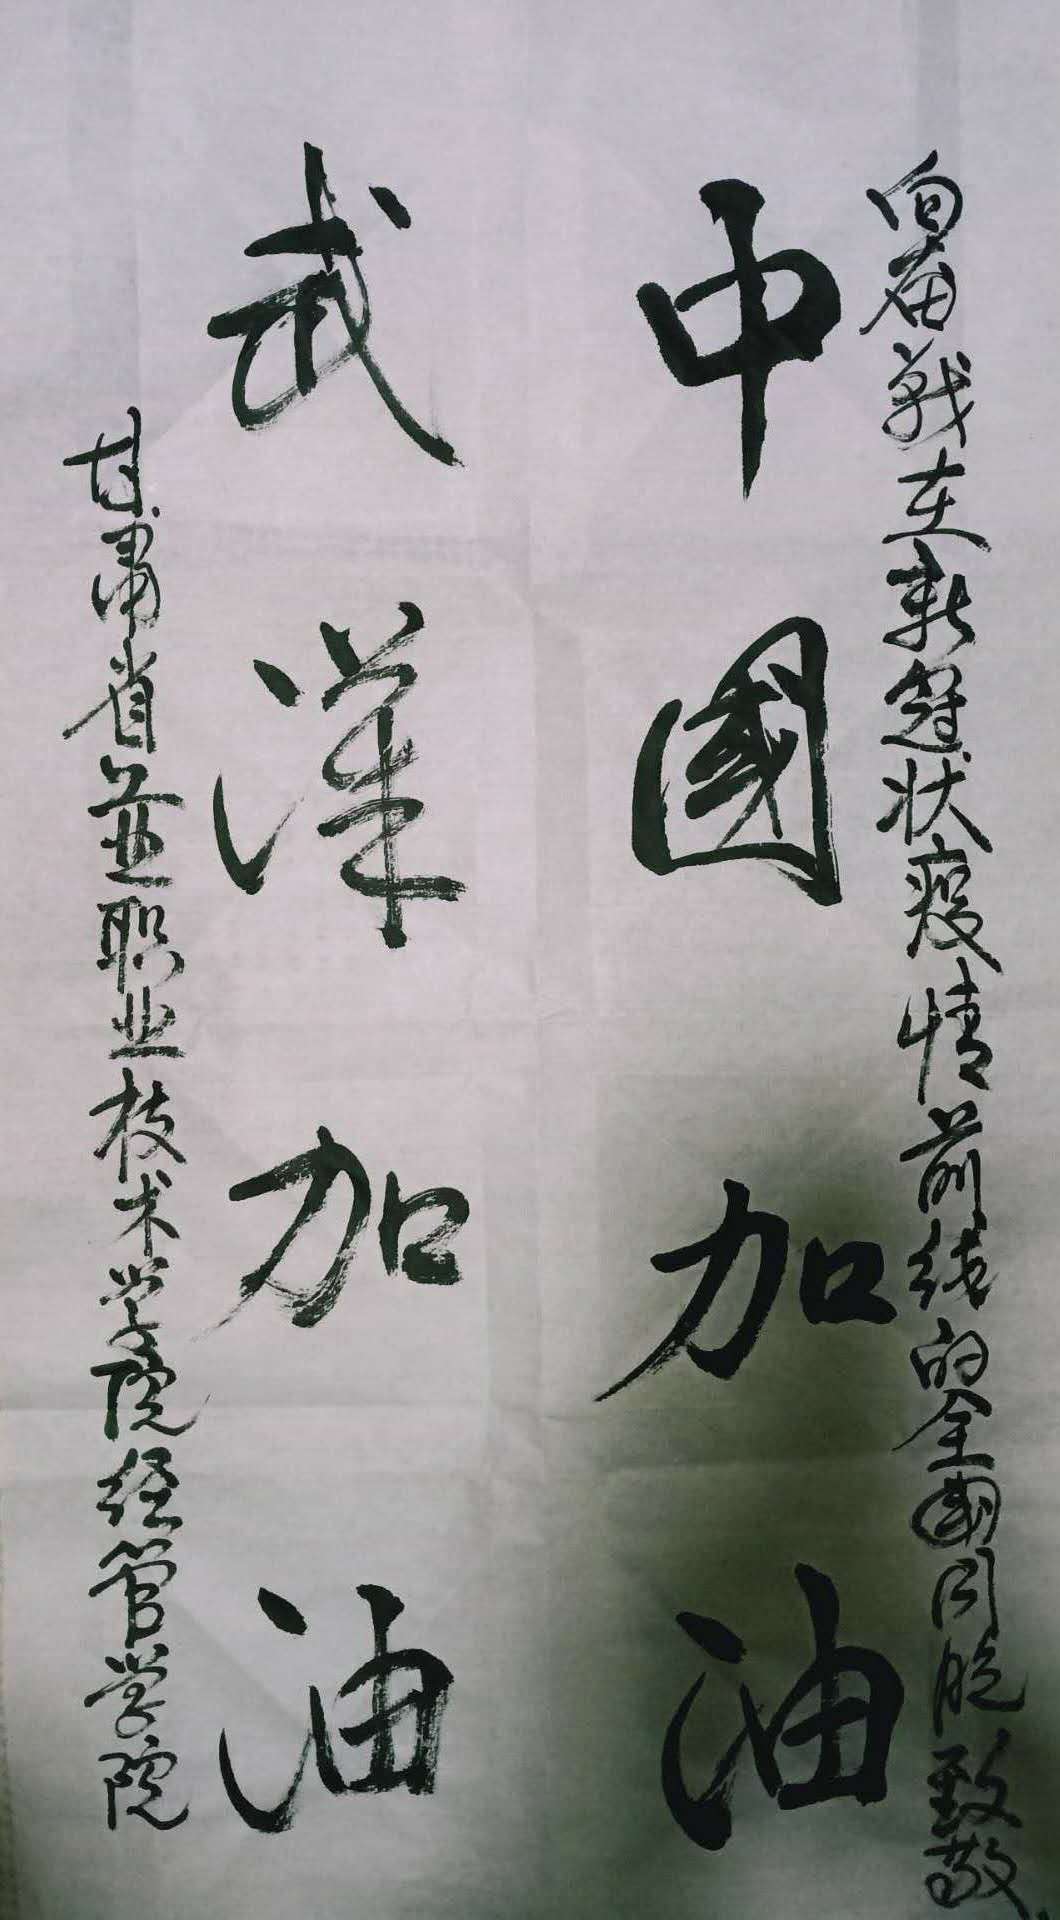 向奋战在新冠状疫情前线的全國同胞致敬
中國加油
武漢加油
甘肃省並职业技术学院经管学院